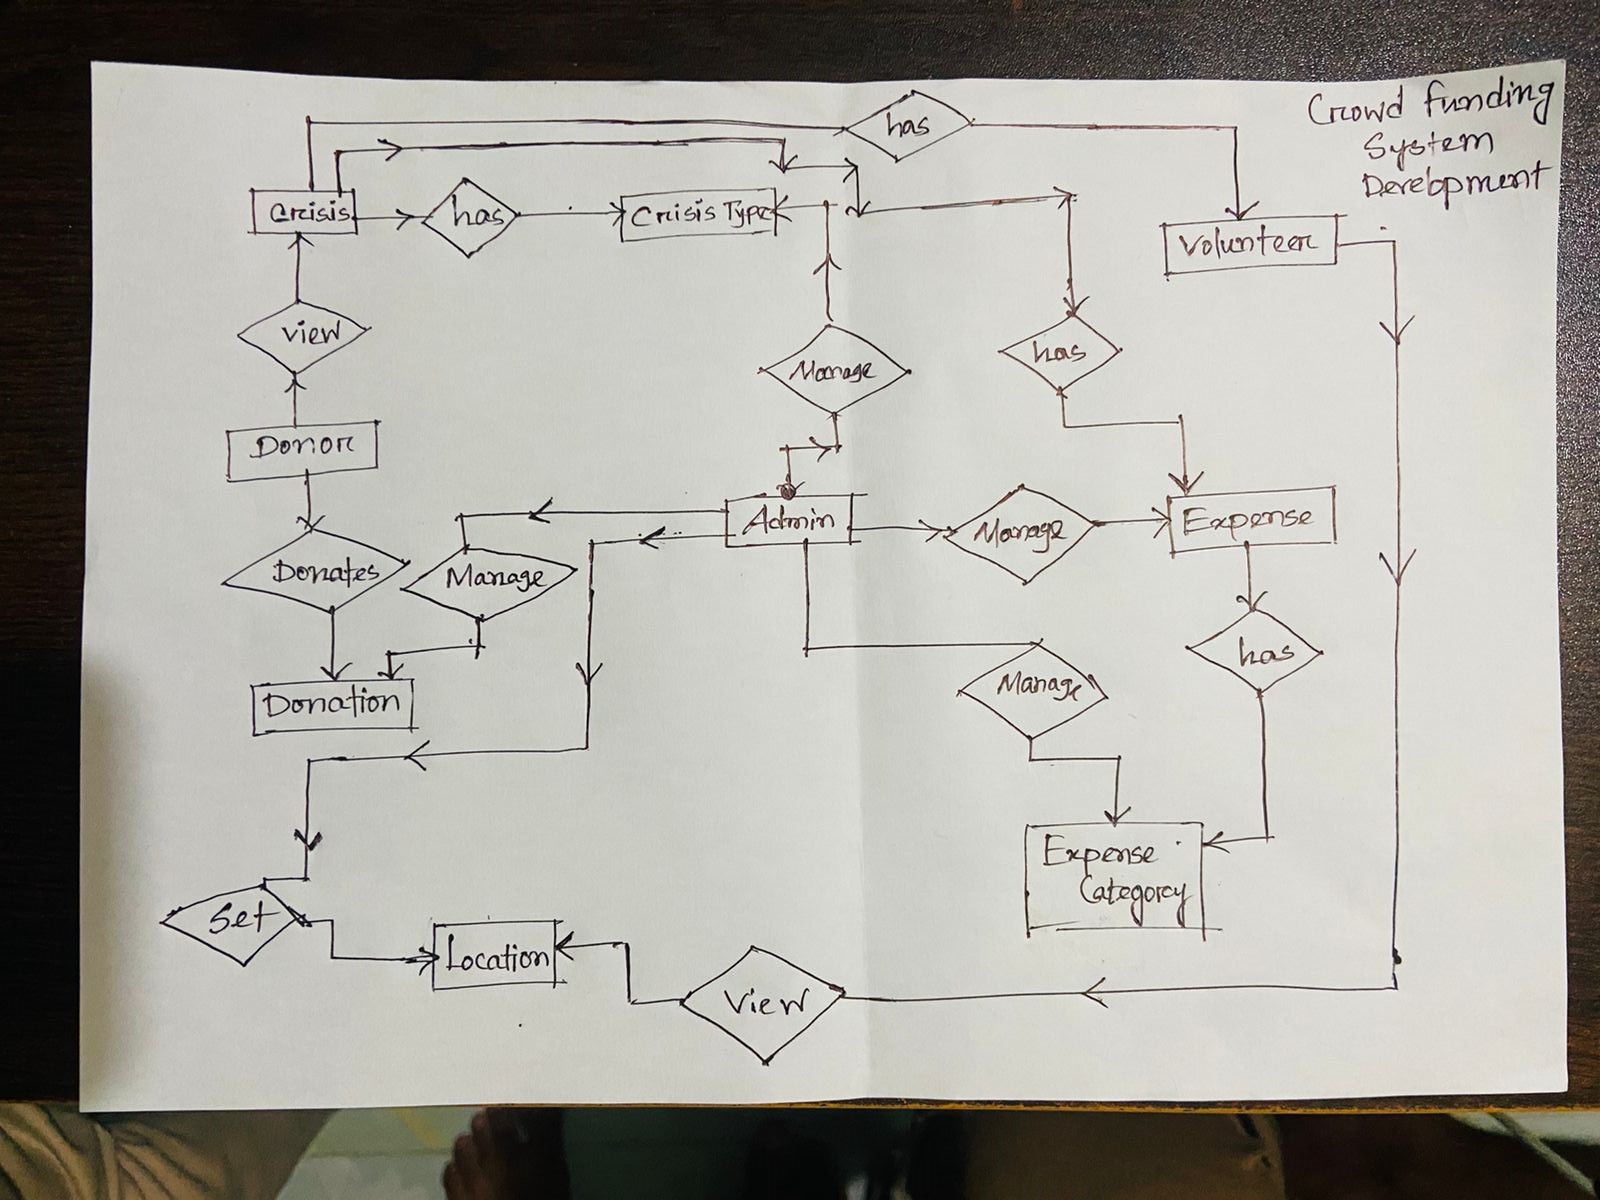 Crowd Funding
System
Development
has
Crisis
has
Crisis Type
Volunteer
view
has
Manage
Donor
Admin
Manage
Expense
Donates
Manage
has
Manage
Donation
Expense
Category
Set
Location
View